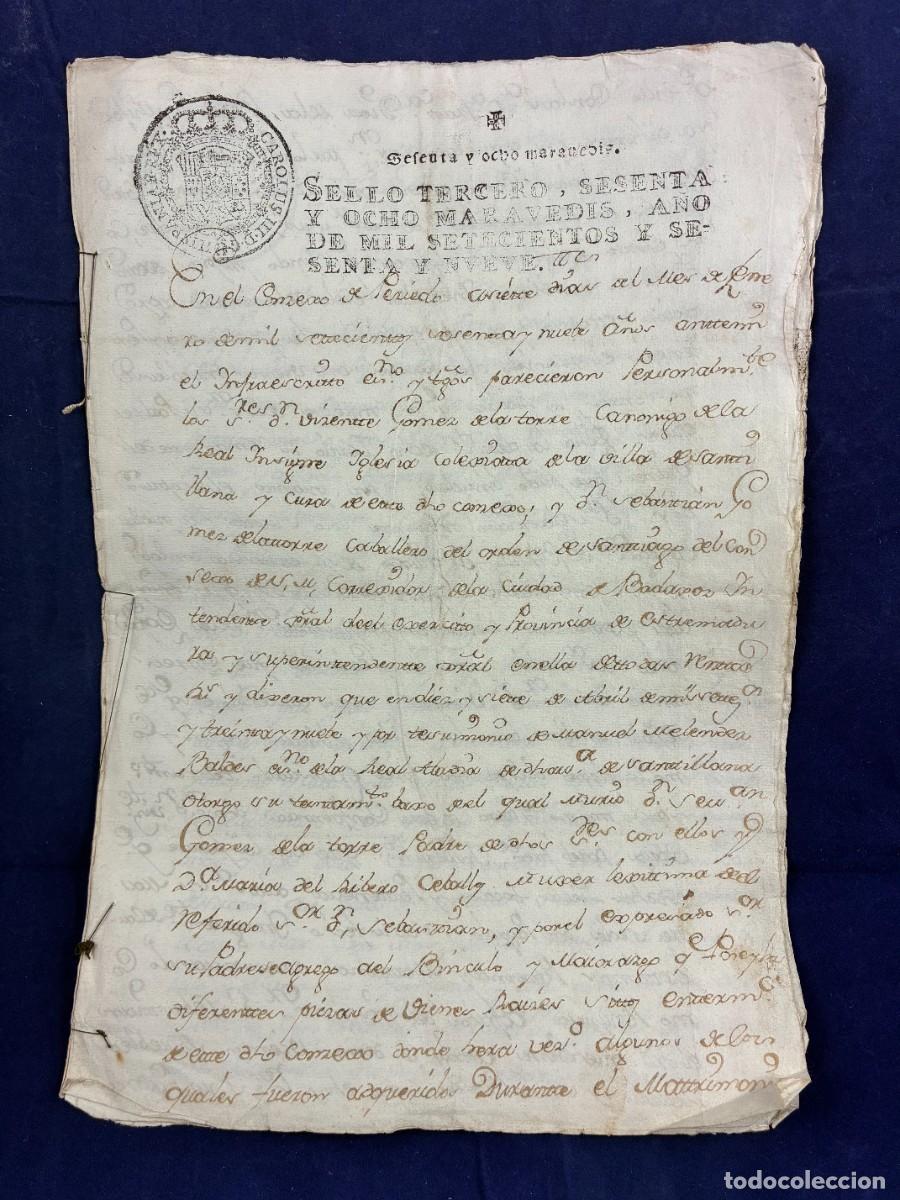 CAROLUS III D. G. HISPANIAR REX
Sesenta y ocho maravedis.
SELLO TERCERO, SESENTA
Y OCHO MARAVEDIS, AÑO
DE MIL SETECIENTOS Y SE-
SENTA Y NVEVE.
En el Conzexo de Periedo a siette dias del Mes de Hene
ro de mil settecientos sesenta y nuebe años antte mi
el Infraescritto esno y tgos parecieron Personalmte
los Sres Dn Vizentte Gomez de la torre Canonigo de la
Real Insigne Iglesia Colexiata de la Villa de Santti
llana y Cura de este dho conzexo, y Dn Sebasttian Go
mez de la torre Caballero del orden de Santtiago del Con
sexo de S. M. Correxidor de la Ciudad de Badaxoz In
tendente Gral del Exercitto y Provincia de Estremadu
ra y superinttendentte Gral en ella de ttodas Renttas
Rs y dixeron que en diez y siete de Abril de mil settezos
y treinta y nuebe y por testtimonio de Manuel Melendez
Baldes esno de la Real Audiza de dha va de Santtillana
otorgo su testtamto baxo del qual Murio Dn Sevan
Gomez de la torre Padre de dhos Sres con ellos y
Da Maria del Ribero Ceballos Muxer lexitima del
referido Sor Dn Sebasttian, y por el expresado Sor
su Padre se agrego al Binculo y Maiorazgo q Poseyia
diferenttes piezas de Vienes Raizes sittos en termo
de este dho conzexo donde hera vezo algunos de los
quales fueron adqueridos Durantte el Mattrimonio
todocoleccion